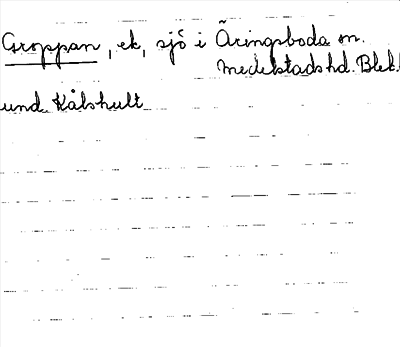 Groppan, ek, sjö i Äringsboda sn.
Medelstads hd. Blek.
und. Kålshult